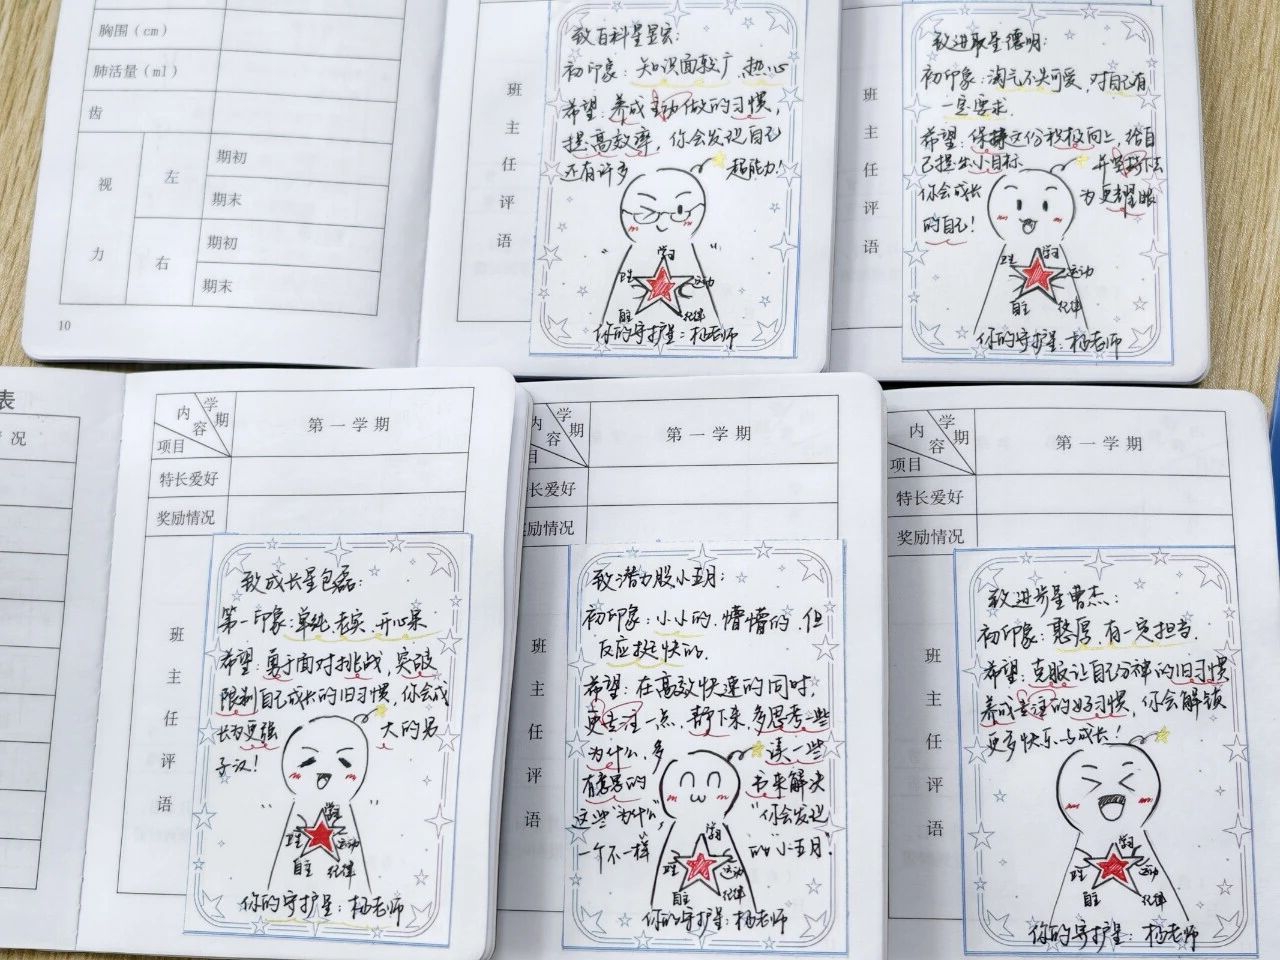 胸围(cm)
肺活量(ml)
齿
视力
左
期初
期末
右
期初
期末
10
班主任评语
致百科星显宏:
初印象:知识面较广,热心
希望:养成主动做的习惯,
提高效率,你会发现自己
还有许多 超能力!
学习
理 运动
自主 纪律
你的守护星:杨老师
班主任评语
致进取星德明:
初印象:淘气不失可爱,对自己有
一定要求.
希望:保持这份积极向上,给自
己提出小目标 并坚持下去
你会成长 为更耀眼
的自己!
学习
理 运动
自主 纪律
你的守护星:杨老师
表
况
内容
学期
项目
第一学期
特长爱好
奖励情况
班主任评语
致成长星包磊:
第一印象:单纯,老实,开心果
希望:勇于面对挑战,突破
限制自己成长的旧习惯,你会成
长为更强 大的男
子汉!
学习
理 运动
自主 纪律
你的守护星:杨老师
内容
学期
目
第一学期
长爱好
励情况
班主任评语
致潜力股小五月:
初印象:小小的,懵懵的,但
反应挺快的.
希望:在高效快速的同时,
更专注一点,静下来,多思考一些
为什么,多 读一些
有意思的 书来解决
这些"为什么", 你会发现
一个不一样 的"小五月".
学习
理 运动
自主 纪律
你的守护星:杨老师
内容
学期
项目
第一学期
特长爱好
奖励情况
班主任评语
致进步星曹杰:
初印象:憨厚,有一定担当.
希望:克服让自己分神的旧习惯
养成专注的好习惯,你会解锁
更多快乐与成长!
学习
理 运动
自主 纪律
你的守护星:杨老师